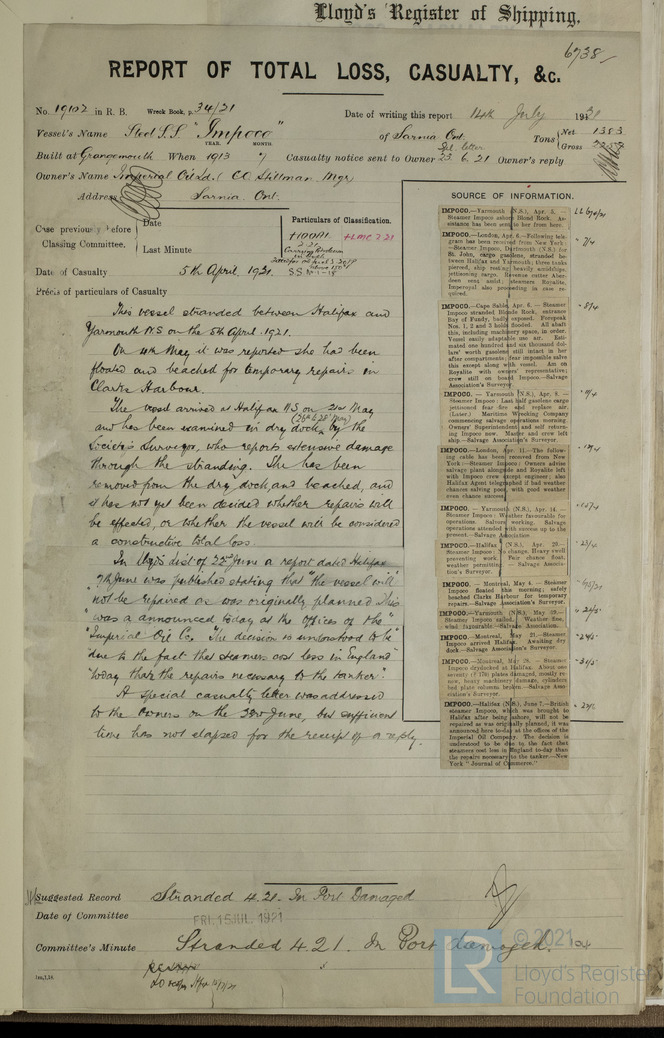 Lloyd's Register of Shipping.
6738
REPORT OF TOTAL LOSS, CASUALTY, &c.
No. 19102 in R. B. Wreck Book, p. 34/21
Date of writing this report 14th July 1921
Vessel's Name Steel S.S "Impoco" of Sarnia Ont. Tons Net 1383
Gross
YEAR. MONTH.
Spl. letter
Built at Grangemouth When 1913 7 Casualty notice sent to Owner 23.6.21 Owner's reply
Owner's Name Imperial Oil Ld. (CO Stillman Mgr)
Address Sarnia Ont.
Case previously before Classing Committee.
Date
Last Minute
Particulars of Classification.
+100A1.
+LMC 2.21
2.21
Carrying Petroleum
in Bulk
Date of Casualty 5th April 1921.
Précis of particulars of Casualty
This vessel stranded between Halifax and
Yarmouth NS on the 5th April 1921.
On 4th May it was reported she had been
floated and beached for temporary repairs in
Clarks Harbour.
The vessel arrived at Halifax NS on 21st May
(26th & 28 May)
and has been examined in dry dock by the
Society's Surveyor, who reports extensive damage
through the stranding. She has been
removed from the dry dock and beached, and
it has not yet been decided whether repairs will
be effected, or whether the vessel will be considered
a constructive total loss.
In Lloyd's List of 22nd June a report dated Halifax
7th June was published stating that "the vessel will"
"not be repaired as was originally planned. This"
"was announced today at the offices of the"
"Imperial Oil Co. The decision is understood to be"
"due to the fact that steamers cost less in England"
"today than the repairs necessary to the tanker."
A special casualty letter was addressed
to the Owners on the 23rd June, but sufficient
time has not elapsed for the receipt of a reply.
SOURCE OF INFORMATION.
IMPOCO.—Yarmouth (N.S.), Apr. 5. —
Steamer Impoco ashore Blond Rock. As-
sistance has been sent to her from here.
IMPOCO.—London, Apr. 6.—Following tele-
gram has been received from New York
—Steamer Impoco, Dartmouth (N.S.) for
St. John, cargo gasolene, stranded be-
tween Halifax and Yarmouth; three tanks
pierced, ship resting heavily windships,
jettisoning cargo.
7/4
IMPOCO.—Cape Sable, Apr. 6. — Steamer
Impoco stranded Blonde Rock, entrance
Bay of Fundy, badly exposed. Forepeak
Nos. 1, 2 and 3 holds flooded. All abaft
this, including machinery space, in order.
Vessel easily adaptable use air. Esti-
mated one hundred and six thousand dol-
lars' worth gasolene still intact in her
after compartments; fear impossible salve
this except along with vessel. Am on
Royalite with owners' representative;
crew still on board Impoco.—Salvage
Association's Surveyor.
8/4
IMPOCO. — Yarmouth (N.S.), Apr. 8. —
Steamer Impoco: Last half gasolene cargo
jettisoned fear fire and replace air.
(Later.) Maritime Wrecking Company
commencing salvage operations morning.
Owners' Superintendent and self return-
ing Impoco now. Master and crew left
ship.—Salvage Association's Surveyor.
IMPOCO.—London, Apr. 11.—The follow-
ing cable has been received from New
York:—Steamer Impoco: Owners advise
salvage plant alongside and Royalite left
with Impoco crew except engineer; also
Halifax Agent telegraphed if bad weather
chances salving poor, with good weather
even chance success.
IMPOCO. — Yarmouth (N.S.), Apr. 14. —
Steamer Impoco: Weather favourable for
operations. Salvors working. Salvage
operations attended with success up to the
present.—Salvage Association.
IMPOCO. — Halifax (N.S.), Apr. 20. —
Steamer Impoco: No change. Heavy swell
preventing work. Fair chance float,
weather permitting. — Salvage Associa-
tion's Surveyor.
IMPOCO. — Montreal, May 4. — Steamer
Impoco floated this morning; safely
beached Clarks Harbour for temporary
repairs.—Salvage Association's Surveyor.
IMPOCO. — Yarmouth (N.S.), May
Steamer Impoco sailed. Weather fine,
wind favourable.—Salvage Association.
IMPOCO.—Montreal, May 21.—Steamer
Impoco arrived Halifax. Awaiting dry
dock.—Salvage Association's Surveyor.
IMPOCO.—Montreal, May 28. — Steamer
Impoco drydocked at Halifax. About one
seventy (? 170) plates damaged, mostly re-
new, heavy machinery damage, cylinders
bed plate columns broken.—Salvage Asso-
ciation's Surveyor.
IMPOCO.—Halifax (N.S.), June 7.—British
steamer Impoco, which was brought to
Halifax after being ashore, will not be
repaired as was originally planned, it was
announced here to-day at the offices of the
Imperial Oil Company. The decision is
understood to be due to the fact that
steamers cost less in England to-day than
the repairs necessary to the tanker.—New
York "Journal of Commerce."
Suggested Record Stranded 4.21. In Port Damaged
Date of Committee FRI. 15 JUL. 1921
Committee's Minute Stranded 4.21. In Port damaged.
© 2021
LR
Lloyd's Register
Foundation